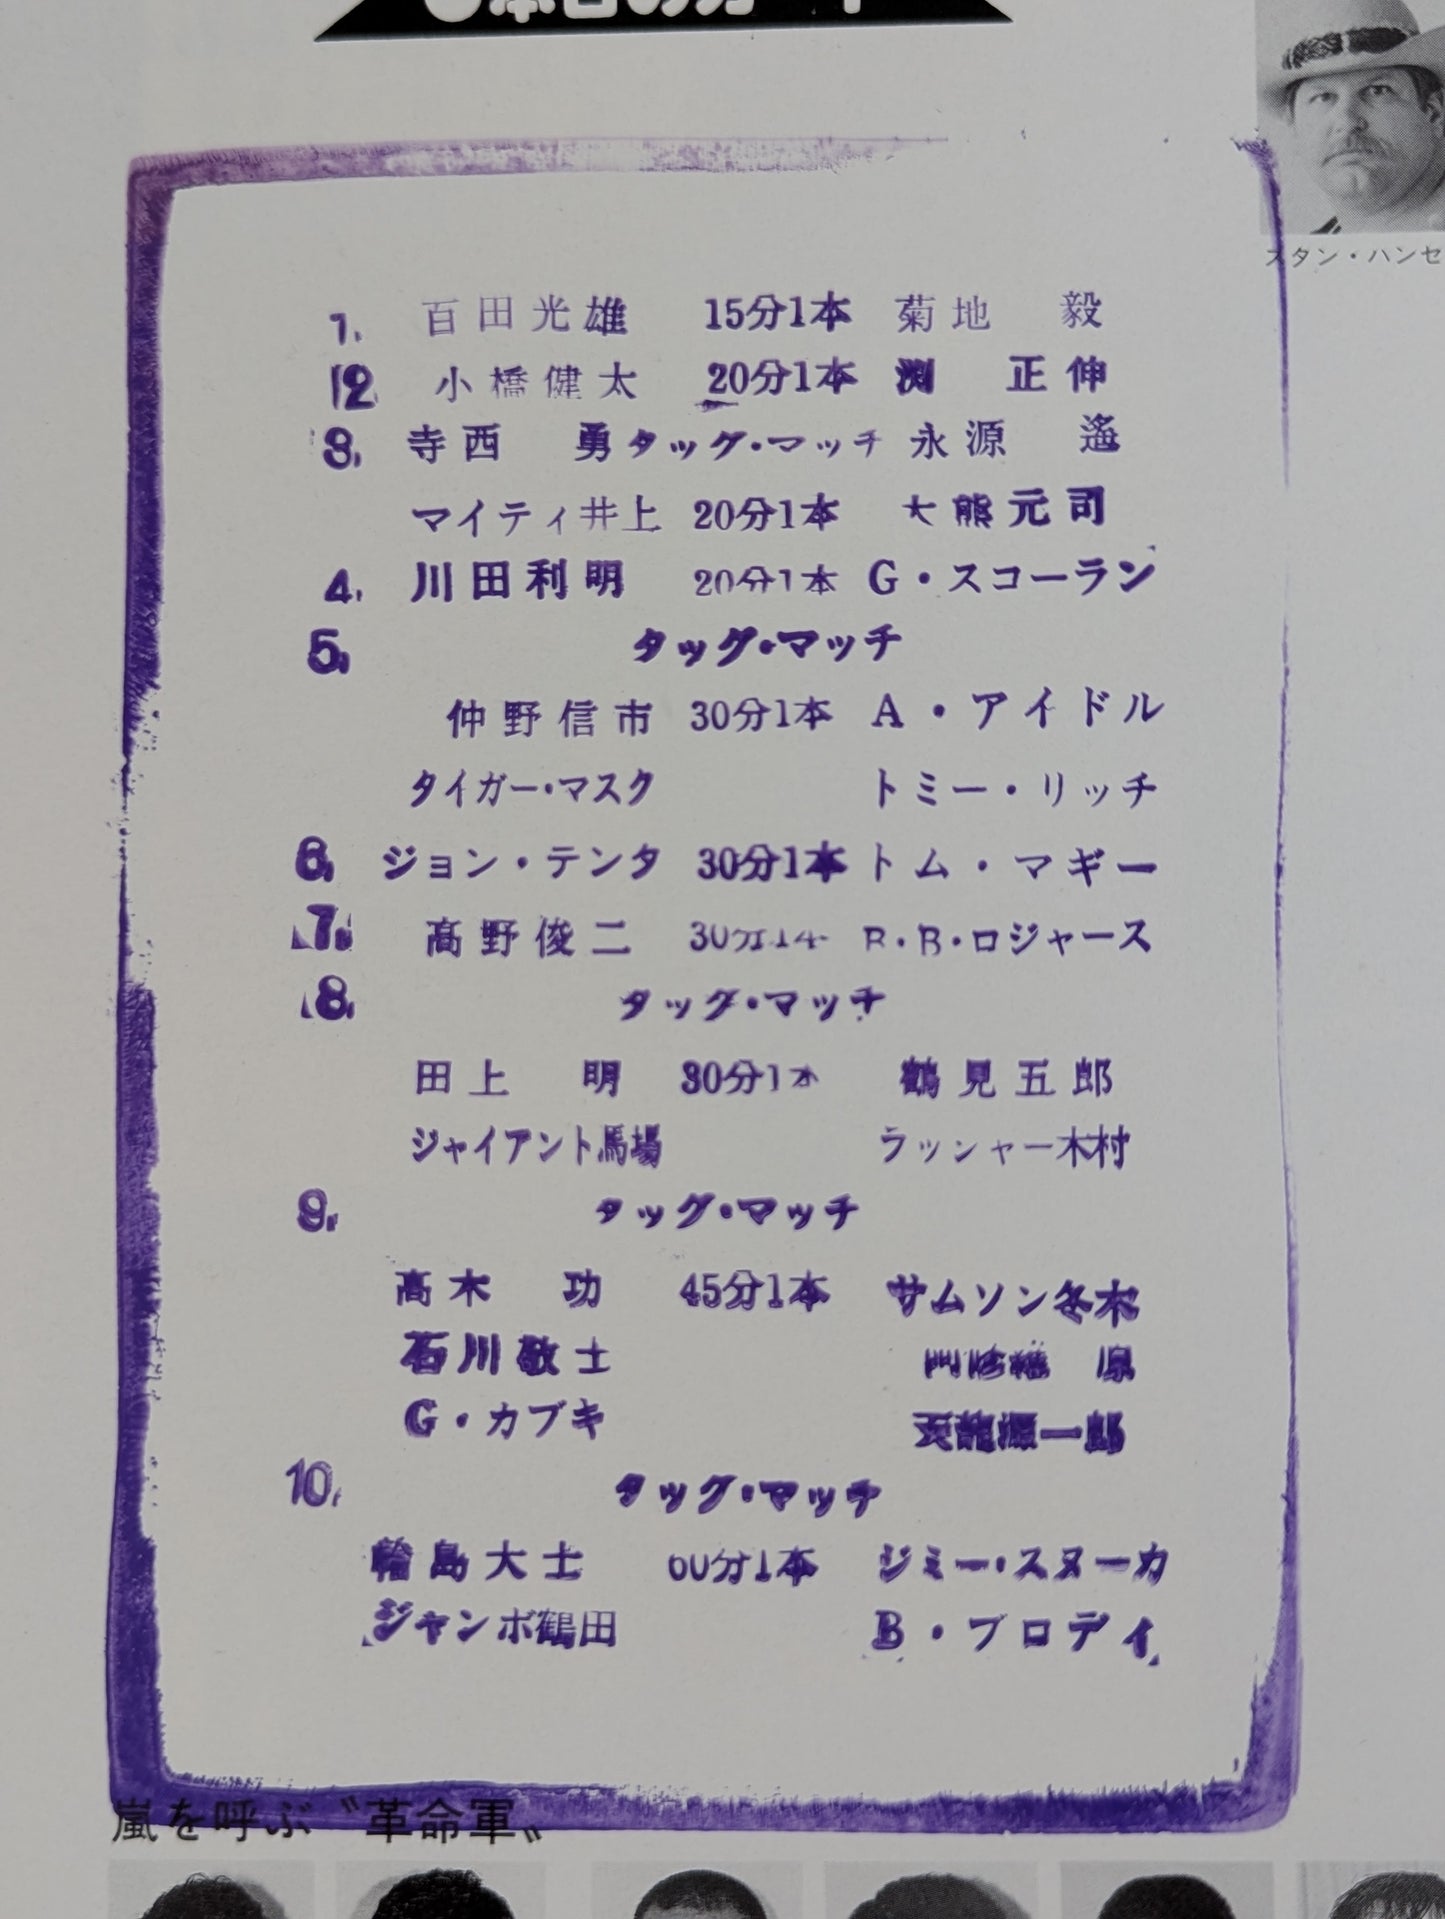 ●本日のカード
スタン・ハンセ
1. 百田光雄 15分1本 菊地 毅
12. 小橋健太 20分1本 渕 正伸
3. 寺西 勇 タッグ・マッチ 永源 遙
マイティ井上 20分1本 大熊元司
4. 川田利明 20分1本 G・スコーラン
5. タッグ・マッチ
仲野信市 30分1本 A・アイドル
タイガー・マスク トミー・リッチ
6. ジョン・テンタ 30分1本 トム・マギー
7. 高野俊二 30分1本 R・B・ロジャース
8. タッグ・マッチ
田上 明 30分1本 鶴見五郎
ジャイアント馬場 ラッシャー木村
9. タッグ・マッチ
高木 功 45分1本 サムソン冬木
石川敬士 原
G・カブキ 天龍源一郎
10. タッグ・マッチ
輪島大士 60分1本 ジミー・スヌーカ
ジャンボ鶴田 B・ブロディ
嵐を呼ぶ〝革命軍〟